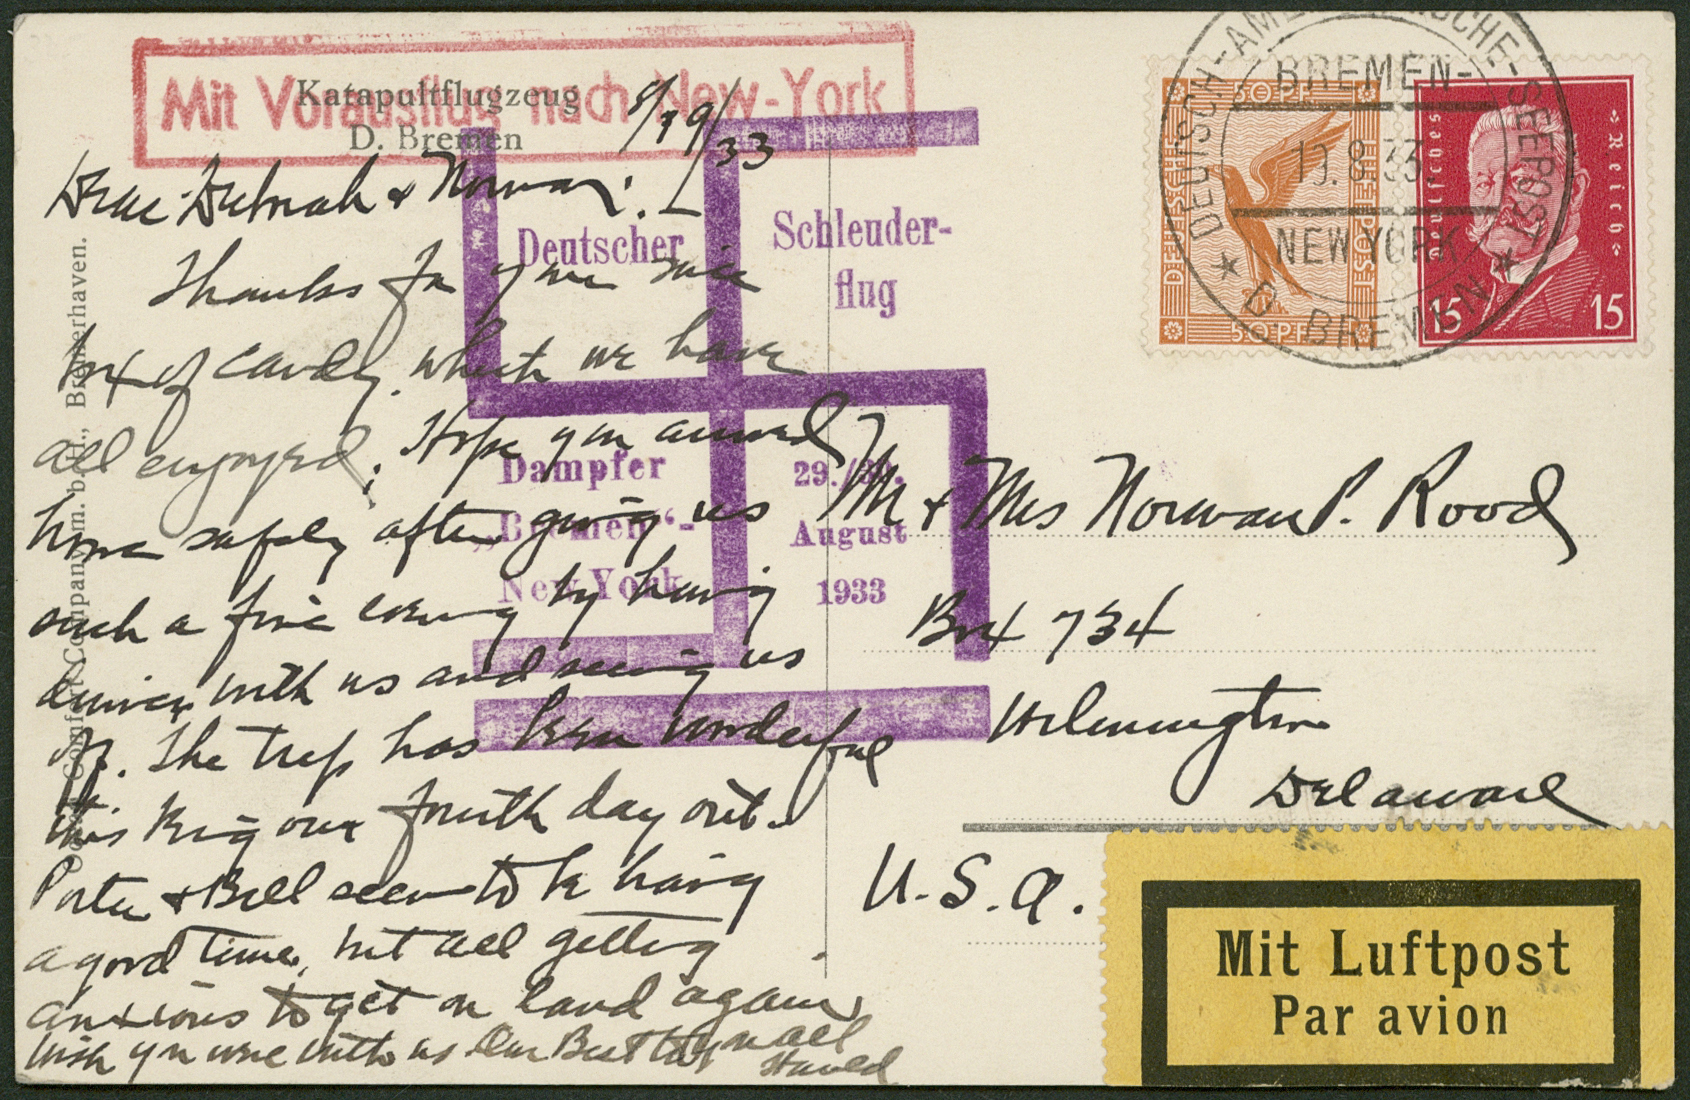 Mit Vorausflug nach New-York
Katapultflugzeug
D. Bremen
8/19/33
Dear Deborah & Norman: —
Thanks for your nice
box of candy which we have
all enjoyed. Hope you arrived
home safely after giving us
such a fine evening by having
dinner with us and seeing us
off. The trip has been wonderful
this being our fourth day out.
Porter & Bill seem to be having
a good time, but all getting
anxious to get on land again
Wish you were with us Our Best to you all
Harold
Deutscher
Schleuder-
flug
Dampfer
„Bremen“-
New York
29./30.
August
1933
DEUTSCH-AMERIKANISCHE-SEEPOST
BREMEN-
19.8.33.
NEW YORK
* D. BREMEN *
DEUTSCHE
50 PF
FLUGPOST
50 PF
Deutsches
«Reich»
15 15
Mr & Mrs Norman P. Rood
Box 734
Wilmington
Delaware
U.S.A.
Mit Luftpost
Par avion
Company m. b. H., Bremerhaven.